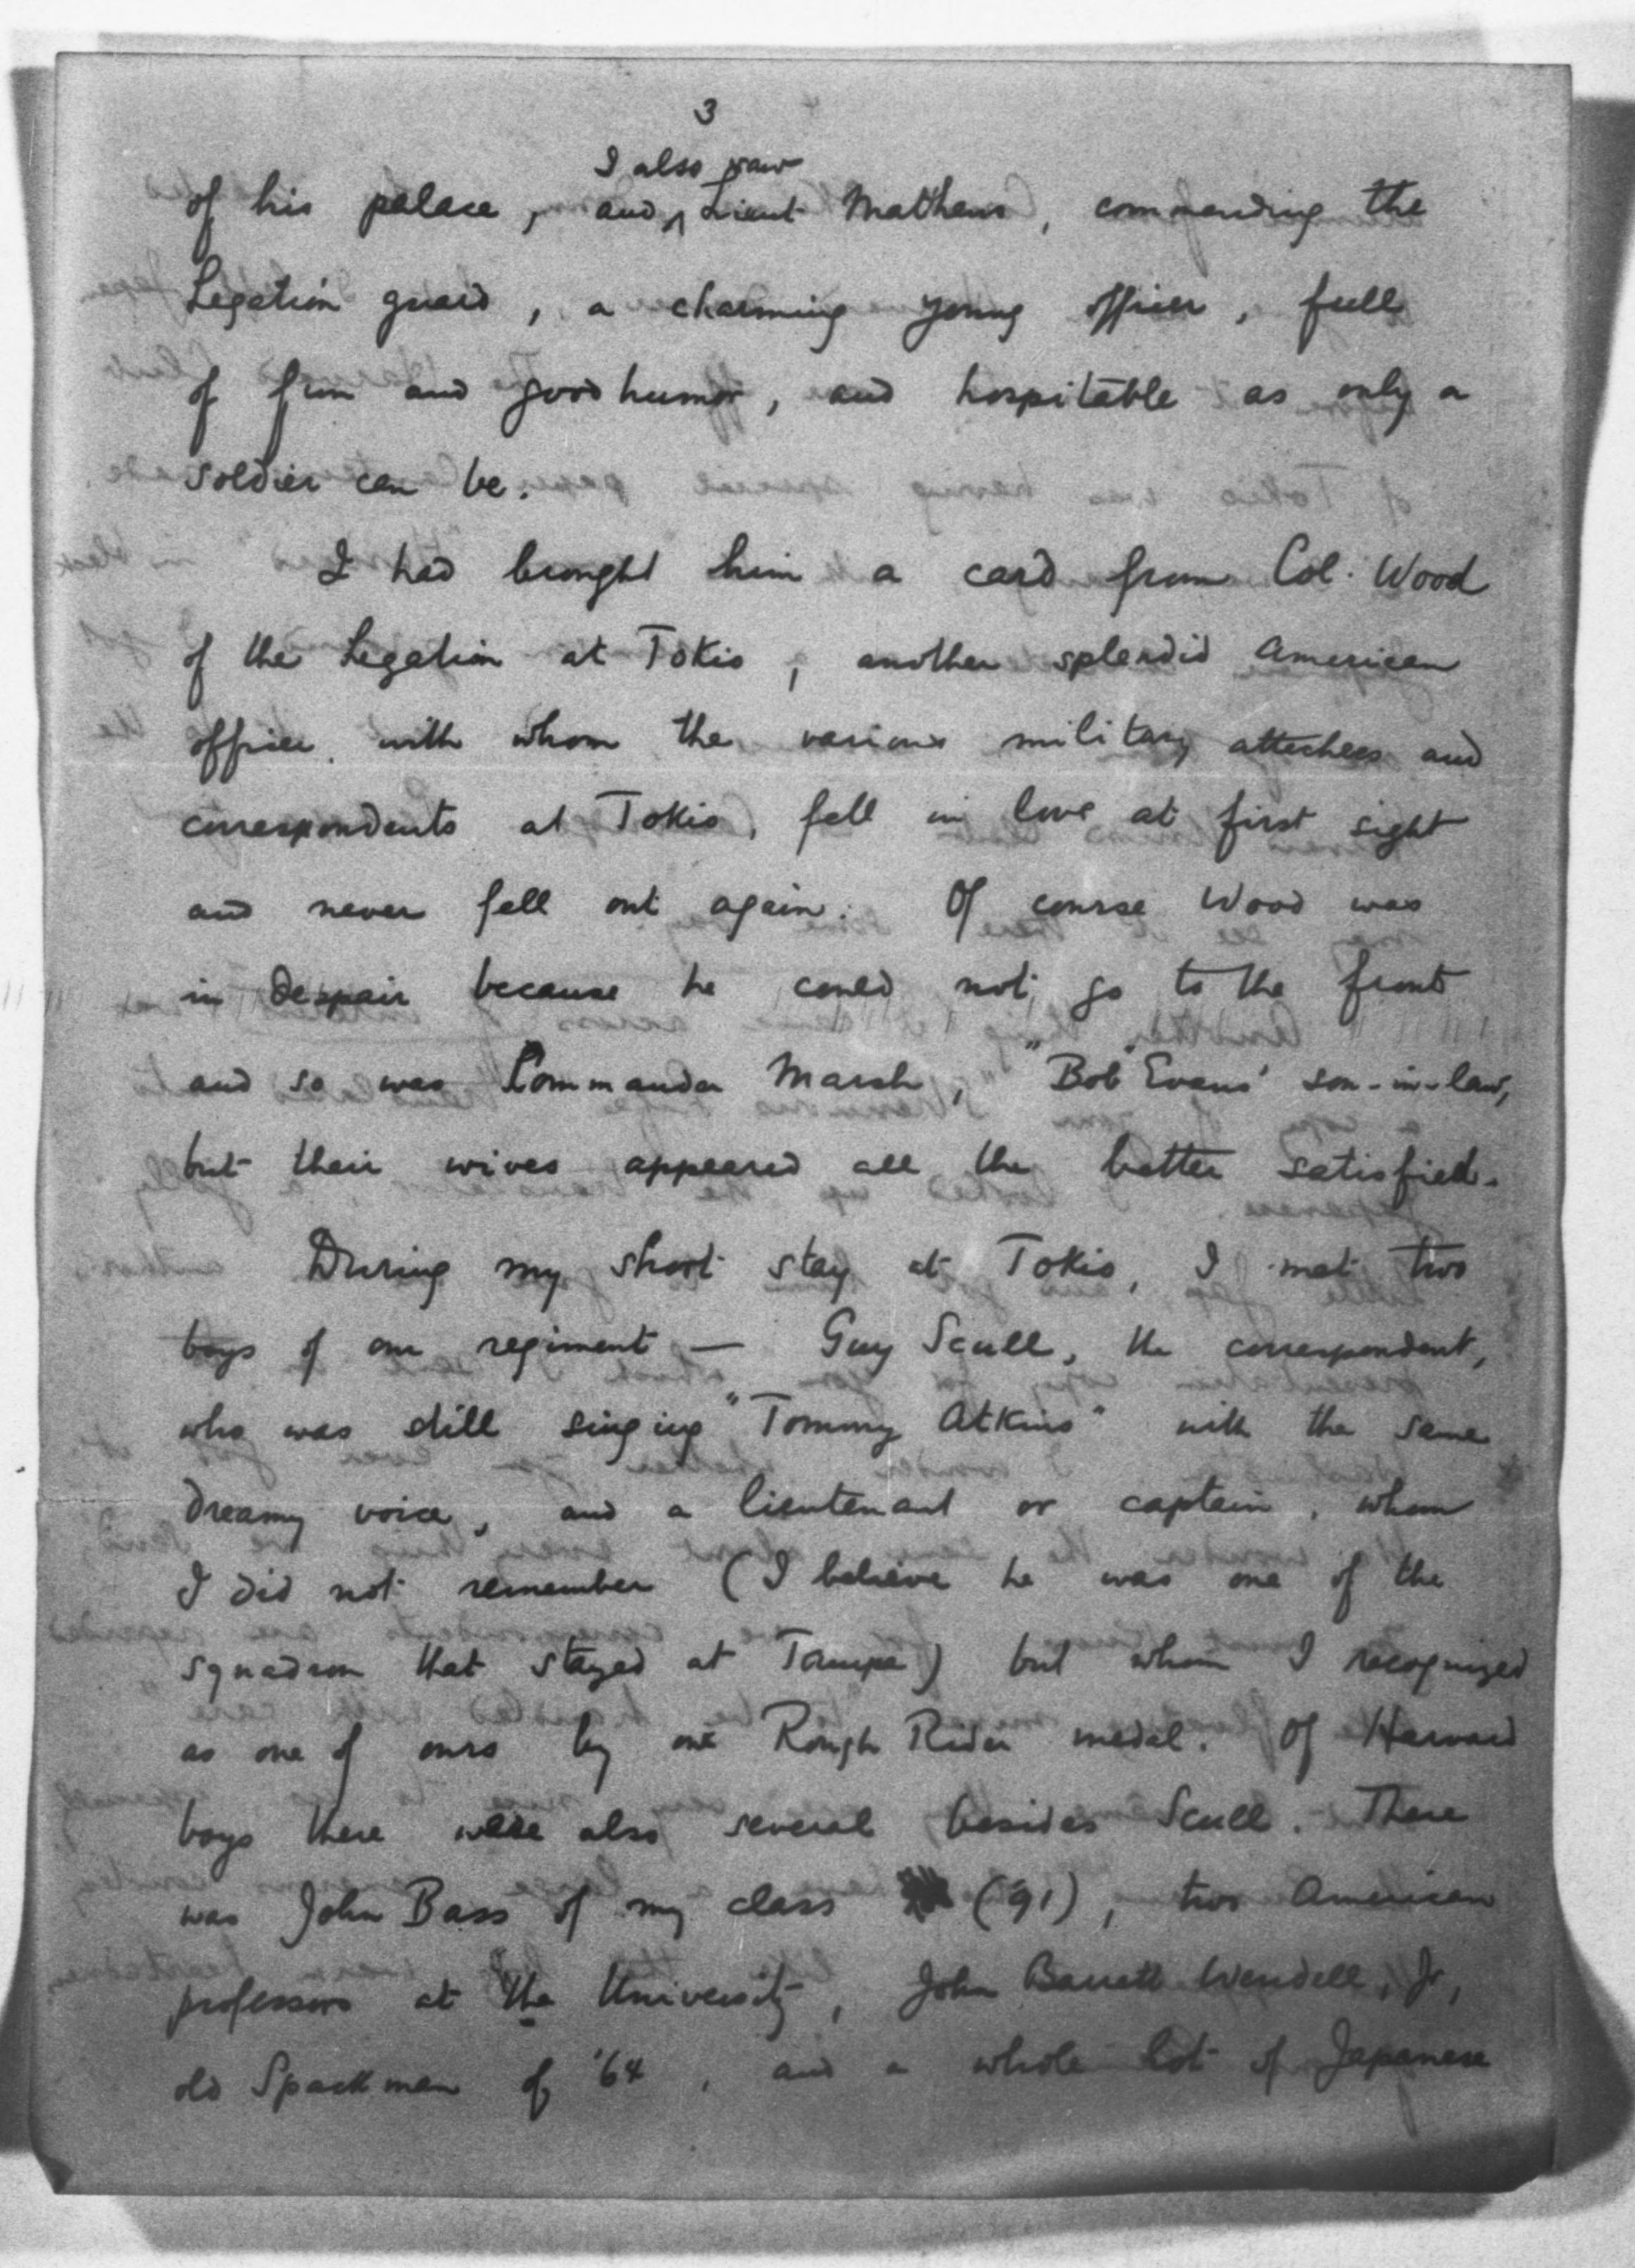 3
I also saw
of his palace, and Lieut Mathews, commanding the
Legation guard, a charming young officer, full
of fun and good humor, and hospitable as only a
soldier can be.
I had brought him a card from Col. Wood
of the Legation at Tokio, another splendid American
officer, with whom the various military attachees and
correspondents at Tokio, fell in love at first sight
and never fell out again. Of course Wood was
in despair because he could not go to the front
and so was Commander Marsh, "Bob" Evans' son-in-law,
but their wives appeared all the better satisfied.
During my short stay at Tokio, I met two
boys of our regiment — Guy Scull, the correspondent,
who was still singing "Tommy Atkins" with the same
dreamy voice, and a lieutenant or captain, whom
I did not remember (I believe he was one of the
squadron that stayed at Tampa) but whom I recognized
as one of ours by our Rough Rider medal. Of Harvard
boys there were also several besides Scull. There
was John Bass of my class ('91), two American
professors at the University, John Barrett Wendell, Jr,
old Spackman of '64, and a whole lot of Japanese